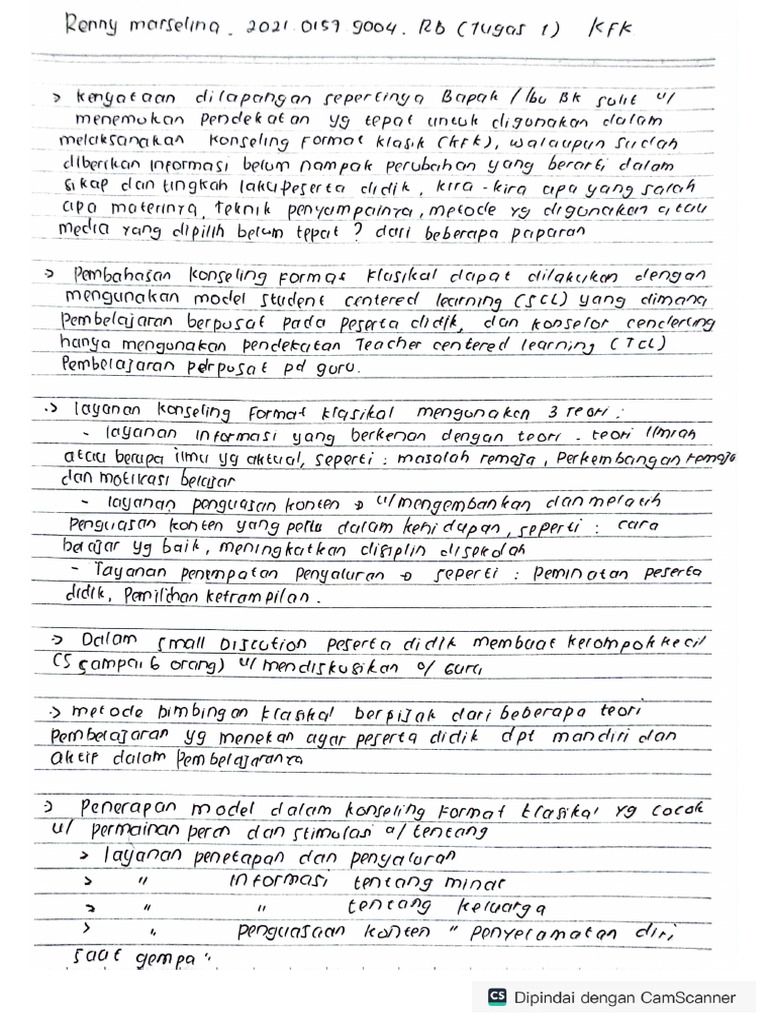 Renny marselina. 2021.0159 9004. RB (Tugas 1) KFK
> kenyataan dilapangan sepertinya Bapak / Ibu BK sulit u/
menemukan pendekatan yg tepat untuk digunakan dalam
melaksanakan konseling format klasik (KFK), walaupun sudah
diberikan informasi belum nampak perubahan yang berarti dalam
sikap dan tingkah laku peserta didik, kira-kira apa yang salah
apa materinya, Teknik penyampainya, metode yg digunakan atau
media yang dipilih belum tepat? dari beberapa paparan
> Pembahasan konseling format klasikal dapat dilakukan dengan
mengunakan model student centered learning (SCL) yang dimana
Pembelajaran berpusat pada peserta didik, dan konselor cenderung
hanya mengunakan pendekatan Teacher centered learning (TCL)
Pembelajaran perpusat pd guru.
.> layanan konseling format klasikal mengunaken 3 teori :
- layanan informasi yang berkenan dengan teori - teori Ilmiah
atau berupa ilmu yg aktual, seperti : masalah remaja, Perkembangan remaja
dan motivasi belajar
- layanan penguasan konten → u/ mengembankan dan melatih
penguasan konten yang perlu dalam kehidupan, seperti : cara
belajar yg baik, meningkatkan disiplin disekolah
- Tayanan penempatan penyaluran → seperti : peminatan peserta
didik, pemilihan ketrampilan.
.> Dalam small Discution peserta didik membuat kelompok kecil
(5 sampai 6 orang) u/ mendiskusikan o/ Guru
.> metode bimbingan klasikal berpijak dari beberapa teori
pembelajaran yg menekan agar peserta didik dpt mandiri dan
aktif dalam Pembelajaranya
> Penerapan model dalam konseling format klasikal yg cocok
u/ permainan peran dan stimulasi a/ tentang
> layanan penetapan dan penyaluran
> " informasi tentang minat
> " " tentang keluarga
> " penguasaan konten " penyelamatan diri
saat gempa "
CS Dipindai dengan CamScanner